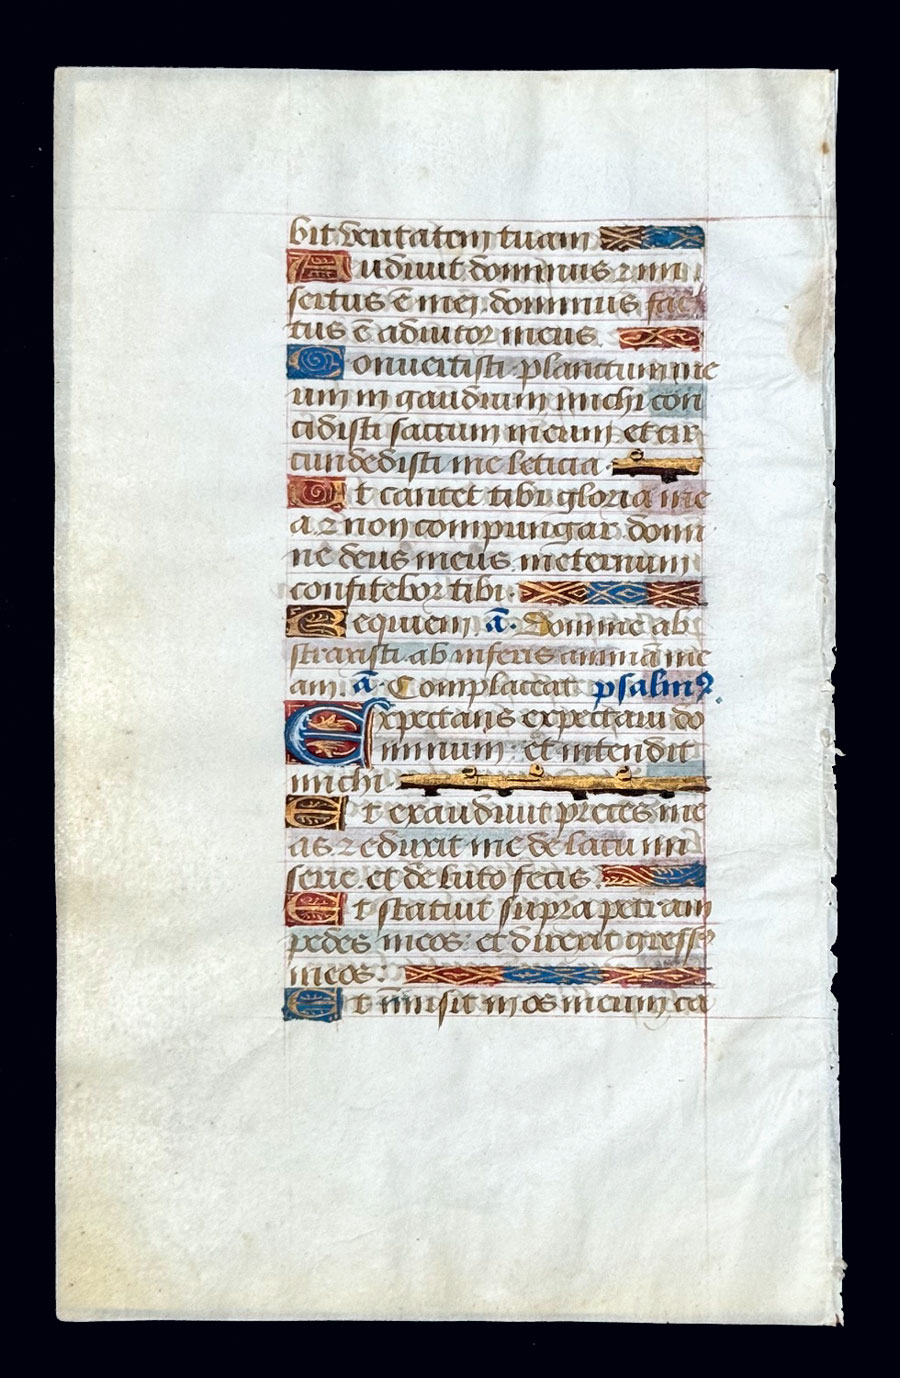 bit veritatem tuam
Audivit dominus ⁊ mi
sertus ē mei. dominus fac
tus ē adiutor meus.
Convertisti planctum me
um in gaudium michi con
cidisti saccum meum et cir
cundedisti me leticia.
Et cantet tibi gloria me
a ⁊ non compungar. domi
ne deus meus. ineternum
confitebor tibi.
Requiem. a᷃. Domine abs
traxisti. ab inferis animā me
am. a᷃. Complaceat psalmꝰ.
Expectans expectavi do
minum: et intendit
michi.
Et exaudivit preces me
as. ⁊ eduxit me de lacu mi
serie. et de luto fecis.
Et statuit supra petram
pedes meos: et direxit gressꝰ
meos:
Et īmisit in os meum ca